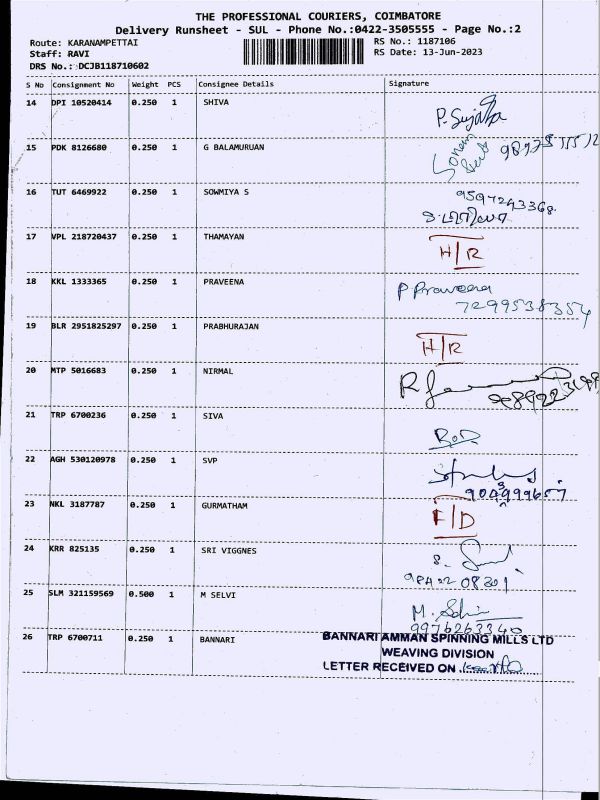 THE PROFESSIONAL COURIERS, COIMBATORE
Delivery Runsheet - SUL - Phone No.:0422-3505555 - Page No.:2
Route: KARANAMPETTAI RS No.: 1187106
Staff: RAVI RS Date: 13-Jun-2023
DRS No.: DCJB118710602
S No Consignment No Weight PCS Consignee Details Signature
14 DPI 10520414 0.250 1 SHIVA P. Sujatha
15 PDK 8126680 0.250 1 G BALAMURUAN
16 TUT 6469922 0.250 1 SOWMIYA S
9597243368
17 VPL 218720437 0.250 1 THAMAYAN H/R
18 KKL 1333365 0.250 1 PRAVEENA P Praveena
7299538354
19 BLR 2951825297 0.250 1 PRABHURAJAN H/R
20 MTP 5016683 0.250 1 NIRMAL
21 TRP 6700236 0.250 1 SIVA
22 AGH 530120978 0.250 1 SVP
23 NKL 3187787 0.250 1 GURMATHAM F/D
24 KRR 825135 0.250 1 SRI VIGGNES
25 SLM 321159569 0.500 1 M SELVI
9976263340
26 TRP 6700711 0.250 1 BANNARI BANNARI AMMAN SPINNING MILLS LTD
WEAVING DIVISION
LETTER RECEIVED ON